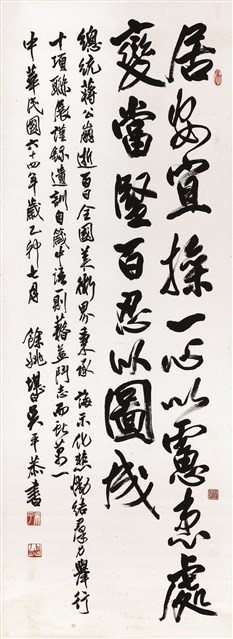 居安宜操一心以慮患處
變當堅百忍以圖成
總統蔣公崩逝百日全國美術界秉承 誨示化悲慟結羣力舉行
十項聯展謹錄遺訓自箴中語一則藉益鬥志而詶萬一
中華民國六十四年歲乙卯七月 餘姚堪白吳平恭書